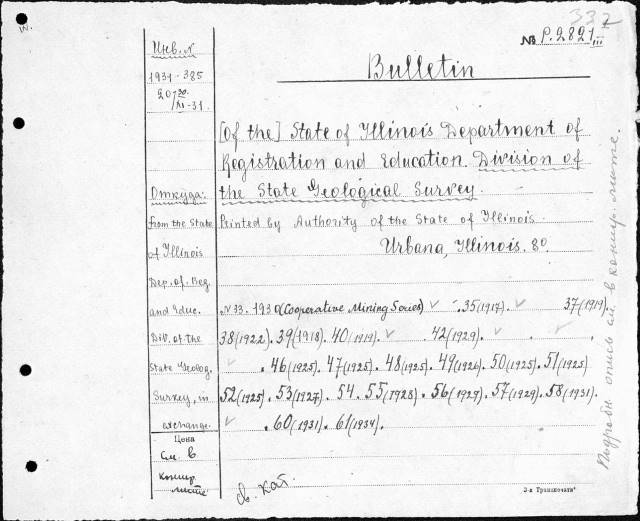 332
№ P.2821/III
Инв. №
1931-385
20/XI-31
Bulletin
[Of the] State of Illinois Department of
Registration and Education. Division of
the State Geological Survey.
Printed by Authority of the State of Illinois.
Urbana, Illinois. 8°
Откуда:
from the State
of Illinois
Dep. of Reg.
and Educ.
Div. of the
State Geolog.
Survey, in
exchange.
Цена
См. в
контр.
листе
N 33. 1930 (Cooperative Mining Series) ✓ . 35(1917). ✓ 37(1919).
38(1922). 39(1918). 40(1919). ✓ 42(1929). ✓ . ✓ .
✓ . 46(1925). 47(1925). 48(1925). 49(1926). 50(1925). 51(1925)
52(1925). 53(1927). 54. 55(1928). 56(1929). 57(1929). 58(1931).
✓ . 60(1931). 61(1934).
св. кат.
3-я Транспечать
Подробн. опись см. в контр. листе.